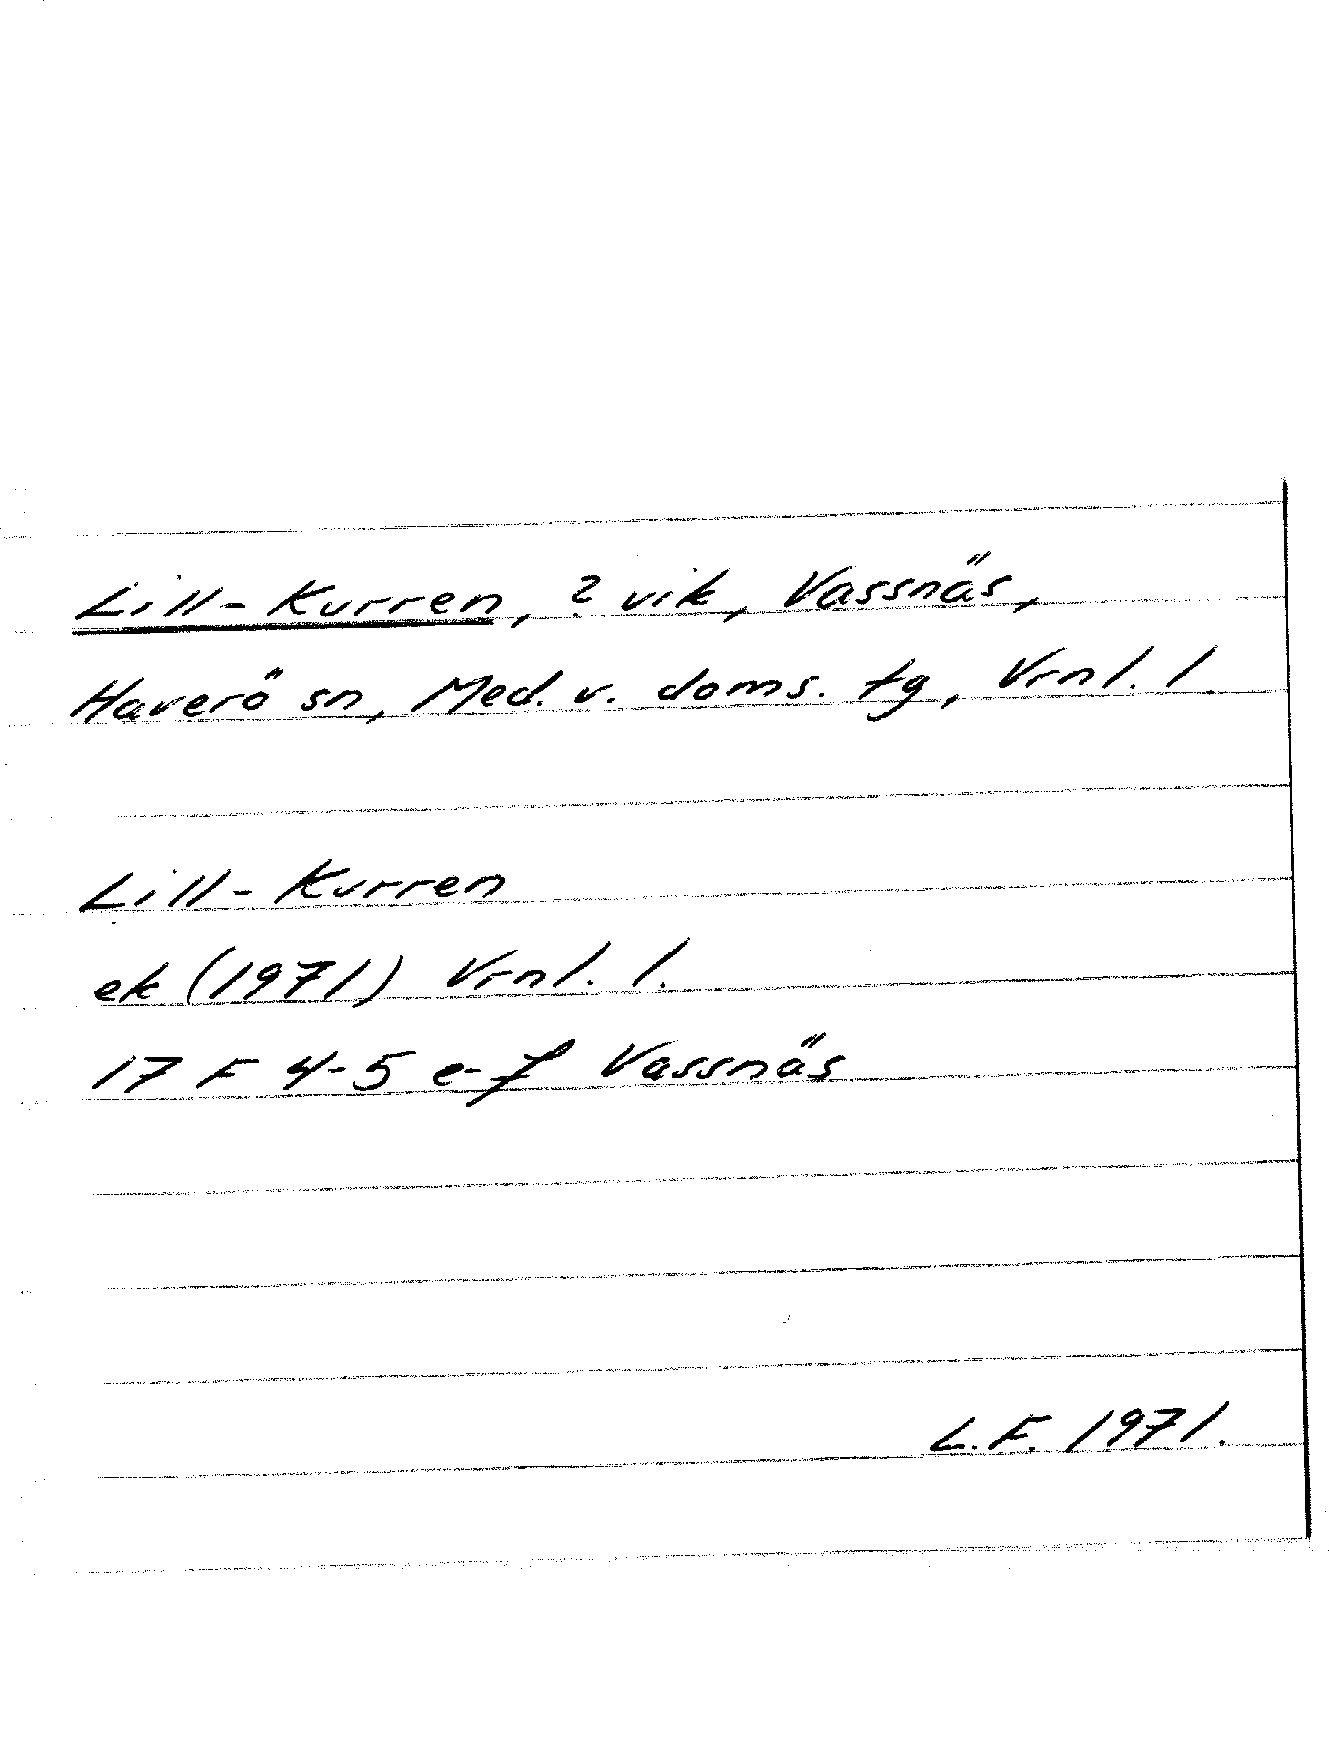 Lill-Kurren, ? vik, Vassnäs,
Haverö sn, Med. v. doms. tg, Vrnl. l.
Lill-Kurren
ek (1971) Vrnl. l.
17 F 4-5 e-f Vassnäs
L.F. 1971.